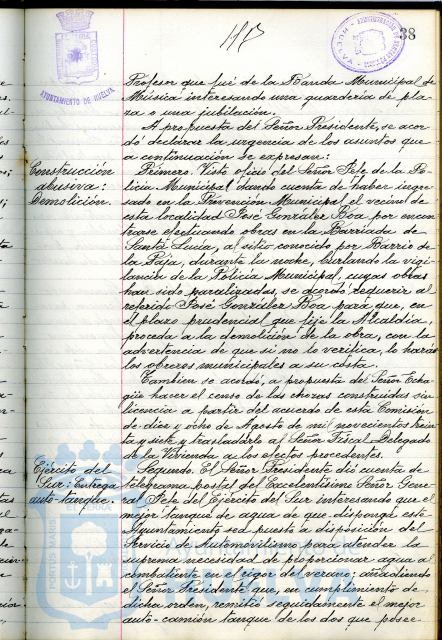 38
AYUNTAMIENTO DE HUELVA
Profesor que fué de la Banda Municipal de
Música interesando una guardería de pla-
za o una jubilación.
A propuesta del Señor Presidente, se acor-
dó declarar la urgencia de los asuntos que
a continuación se expresan:
Construcción
abusiva:
Demolición.
Primero. Visto oficio del Señor Jefe de la Po-
licía Municipal dando cuenta de haber ingre-
sado en la Prevención Municipal el vecino de
esta localidad José González Boa por encon-
trarse efectuando obras en la Barriada de
Santa Lucía, al sitio conocido por Barrio de
la Paja, durante la noche, burlando la vigi-
lancia de la Policía Municipal, cuyas obras
han sido paralizadas, se acordó requerir al
referido José González Boa para que, en
el plazo prudencial que fije la Alcaldía,
proceda a la demolición de la obra, con la
advertencia de que si no lo verifica, lo harán
los obreros municipales a su costa.
Tambien se acordó, a propuesta del Señor Echa-
güe hacer el censo de las chozas construidas sin
licencia a partir del acuerdo de esta Comisión
de diez y ocho de Agosto de mil novecientos trein-
ta y siete y trasladarlo al Señor Fiscal Delegado
de la Vivienda a los efectos procedentes.
Ejército del
Sur: Entrega
auto-tanque.
Segundo. El Señor Presidente dió cuenta de
telegrama postal del Excelentísimo Señor Gene-
ral Jefe del Ejército del Sur interesando que el
mejor tanque de agua de que disponga este
Ayuntamiento sea puesto a disposición del
Servicio de Automovilismo para atender la
suprema necesidad de proporcionar agua al
combatiente en el rigor del verano; añadiendo
el Señor Presidente que, en cumplimiento de
dicha orden, remitió seguidamente el mejor
auto-camión tanque de los dos que posee-
PORTUS MARIS ET TERRAE
Ayuntamiento de